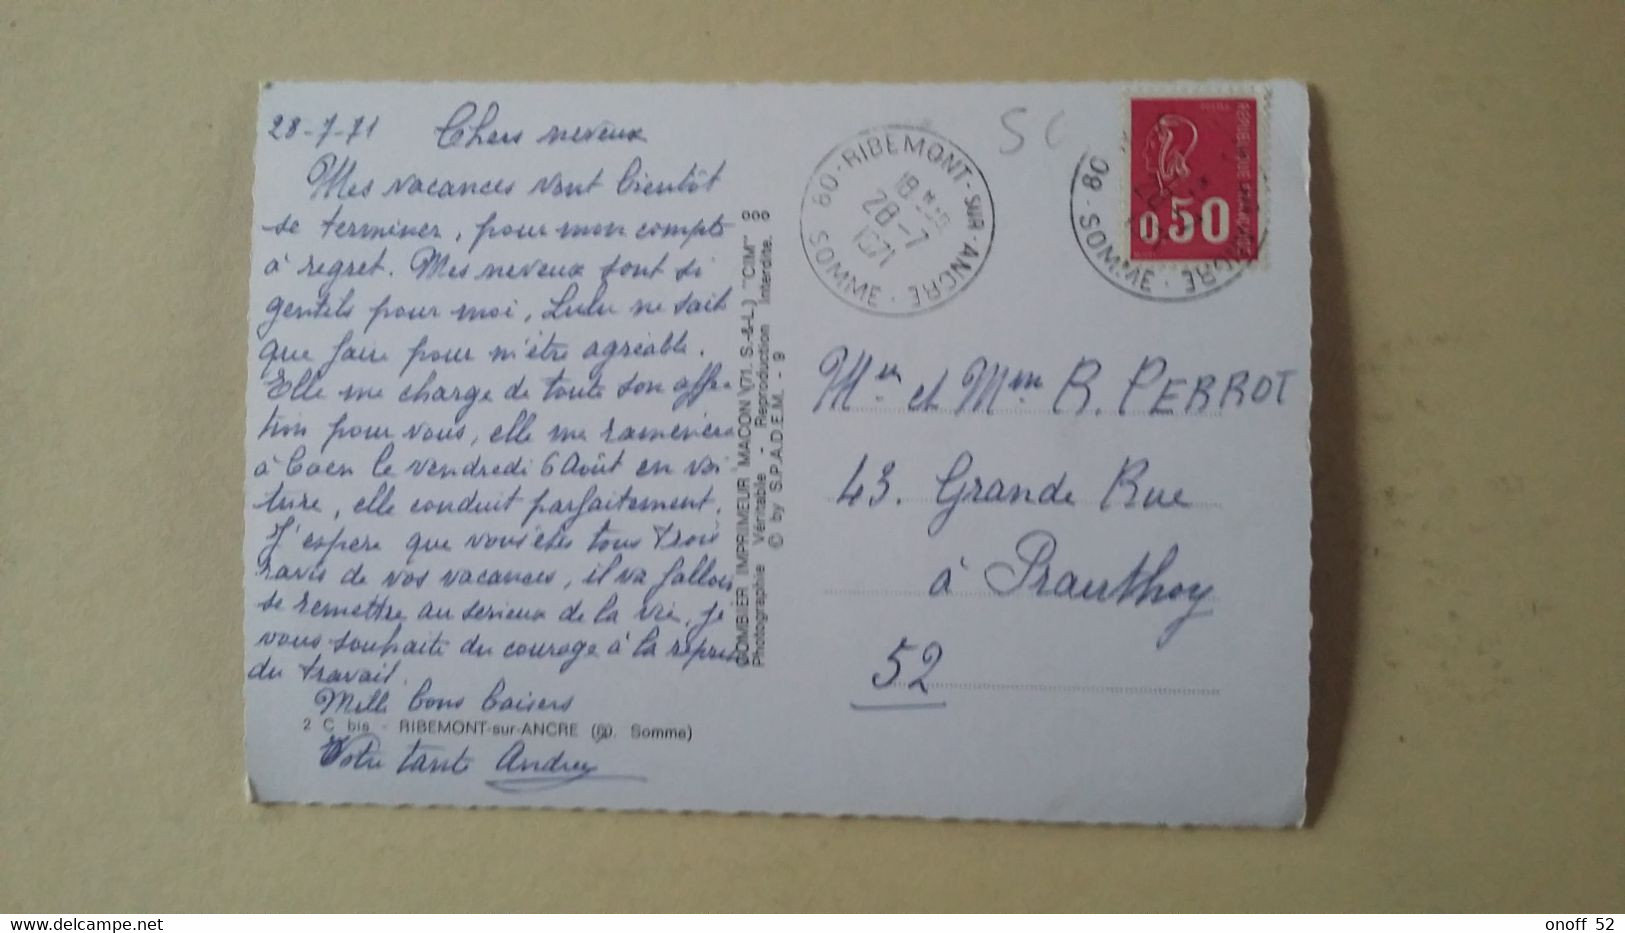 28-7-71 Chers neveux
Mes vacances vont bientôt
se terminer, pour mon compte
à regret. Mes neveux sont si
gentils pour moi, Lulu ne sait
que faire pour m'être agréable.
Elle me charge de toute son affec-
tion pour vous, elle me ramènera
à Caen le vendredi 6 Août en voi
ture, elle conduit parfaitement.
J'espère que vous êtes tous trois
ravis de vos vacances, il va falloir
se remettre au sérieux de la vie, je
vous souhaite du courage à la reprise
du travail.
Mille bons baisers
2 C bis - RIBEMONT-sur-ANCRE (80. Somme)
Votre tante Andrée
COMBIER IMPRIMEUR MACON (71. S.-&-L.) "CIM"
Photographie Véritable - Reproduction Interdite.
© by S.P.A.D.E.M. - 9
80-RIBEMONT-SUR-ANCRE
18H
28-7
1971
SOMME
0,50
REPUBLIQUE FRANÇAISE
80
SOMME
Mr et Mme R. PERROT
43. Grande Rue
à Prauthoy
52
onoff 52